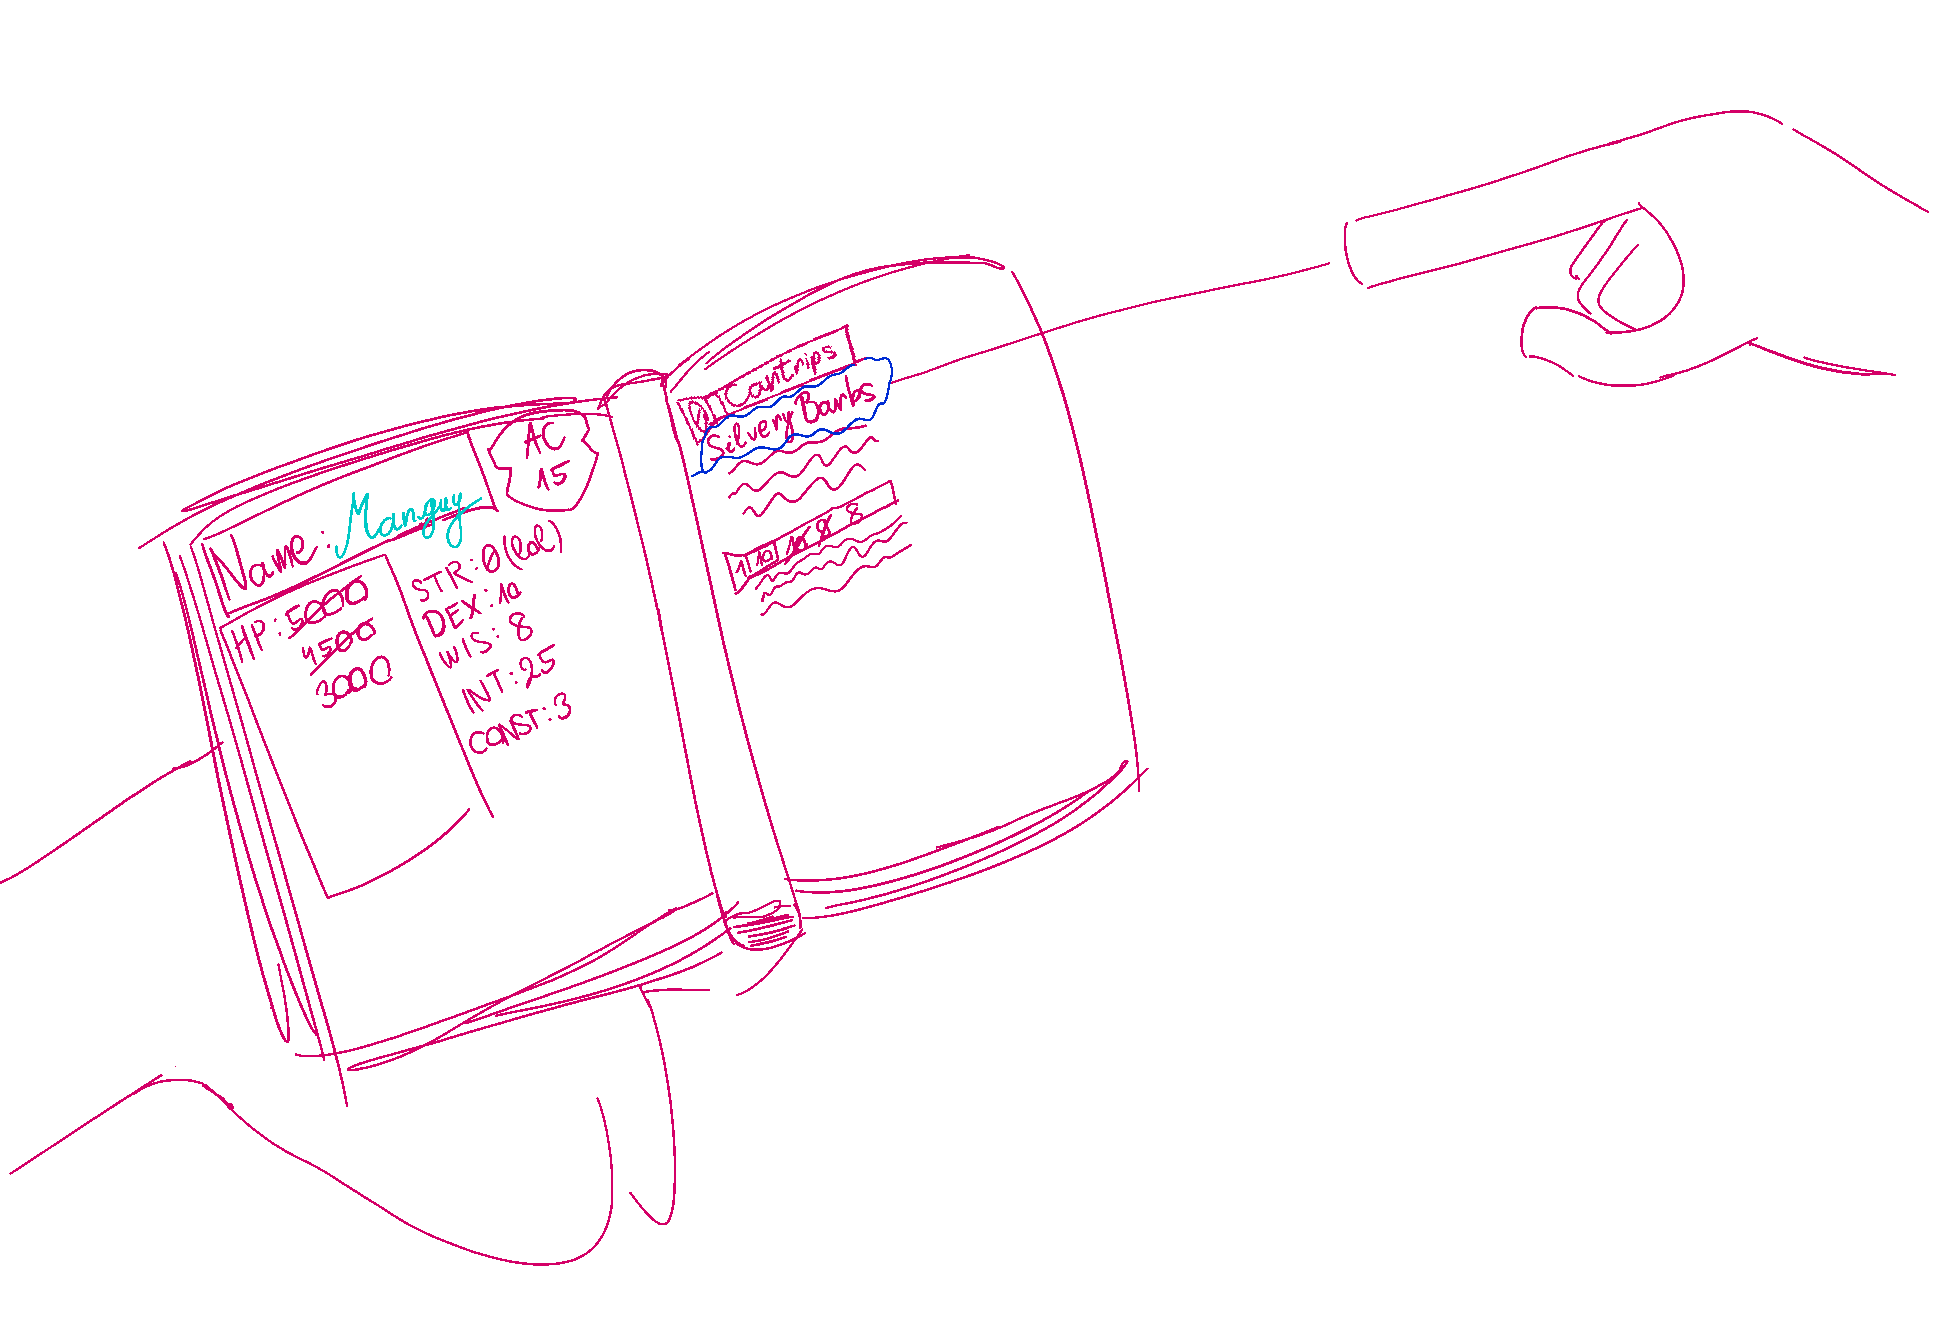 Name: Manguy
AC
15
HP: 5000
4500
3000
STR: 0 (lol)
DEX: 10
WIS: 8
INT: 25
CONST: 3
0 Cantrips
Silvery Barbs
1 10 8